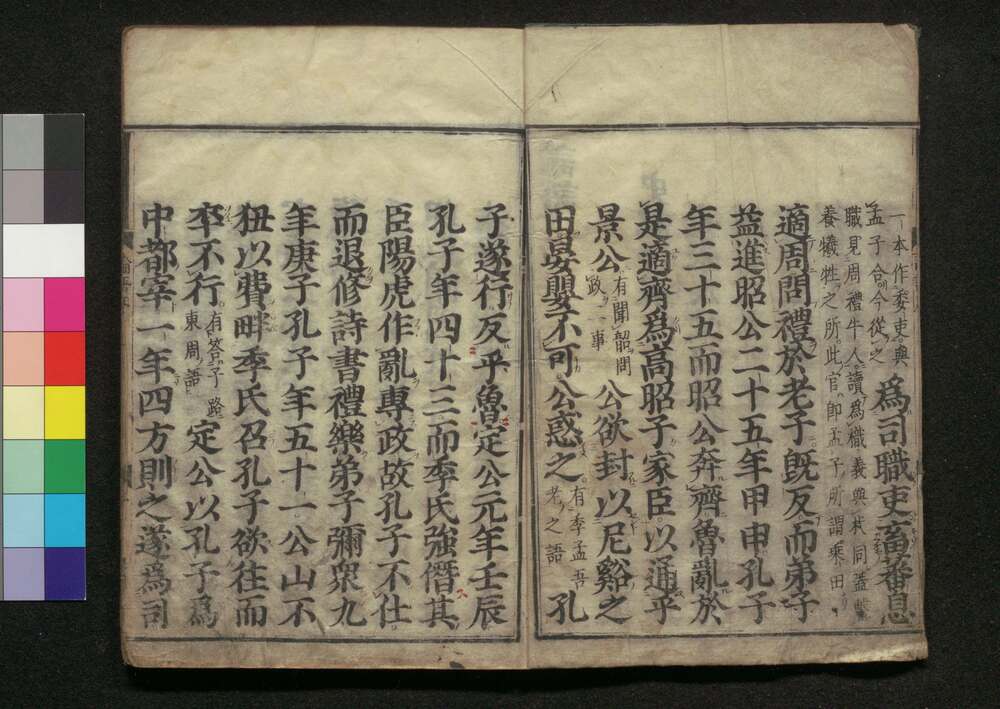 一本作委吏與
孟子合今從之
為司職吏畜蕃息
職見周禮牛人讀為樴義與杙同蓋繫
養犧牲之所此官即孟子所謂乘田
適周問禮於老子既反而弟子
益進昭公二十五年甲申孔子
年三十五而昭公奔齊魯亂於
是適齊為高昭子家臣以通乎
景公
有聞韶問
政二事
公欲封以尼谿之
田晏嬰不可公惑之
有季孟吾
老之語
孔
子遂行反乎魯定公元年壬辰
孔子年四十三而季氏強僭其
臣陽虎作亂專政故孔子不仕
而退修詩書禮樂弟子彌衆九
年庚子孔子年五十一公山不
狃以費畔季氏召孔子欲往而
卒不行
有答子路
東周語
定公以孔子為
中都宰一年四方則之遂為司